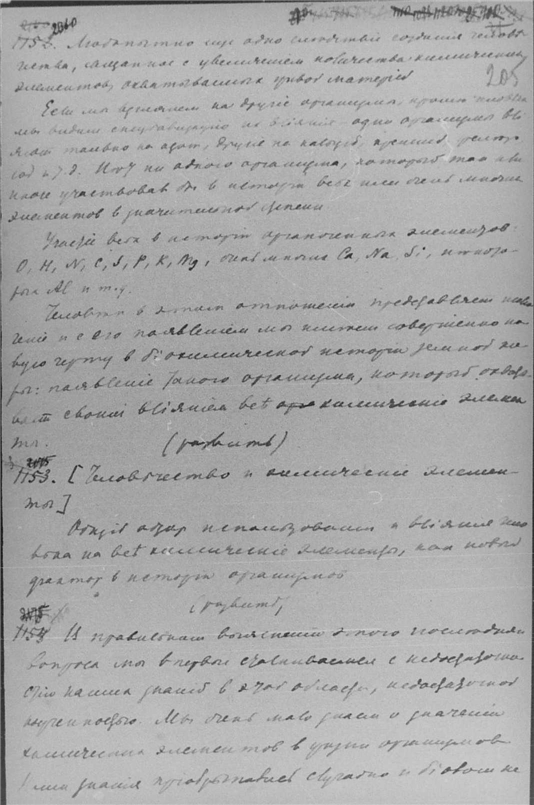 205
1152. Любопытно еще одно следствие создания челове-
чества, связанное с увеличением количества химических
элементов, охватываемых живой материей
Если мы взглянем на другие организмы, кроме человека
мы видим специализацию их влияния – одни организмы вли-
яют только на азот, другие на кальций, кремний,
и т. д. Нет ни одного организма, который так или
иначе участвовал бы в истории всех или очень многих
элементов в значительной степени.
Участие всех в истории органогенных элементов:
O, H, N, C, S, P, K, Mg, очень многие Ca, Na, Si, некото-
рых Al и т. д.
Человек в этом отношении представляет
и с его появлением мы имеем совершенно но-
вую черту в биохимической истории земной ко-
ры: появление такого организма, который охваты-
вает своим влиянием всѣ химические элемен-
ты. (развить)
1153. [Человѣчество и химические элемен-
ты]
Общий обзор использования и влияния чело-
века на всѣ химические элементы, как новый
фактор в истории организмов
(развить)
1154 К правильном выяснении этого последняго
вопроса мы впервые сталкиваемся с недостаточно-
стью наших знаний в этой области, недостаточной
изученностью. Мы очень мало знаем о значении
химических элементов в жизни организмов
знания приобретались случайно и